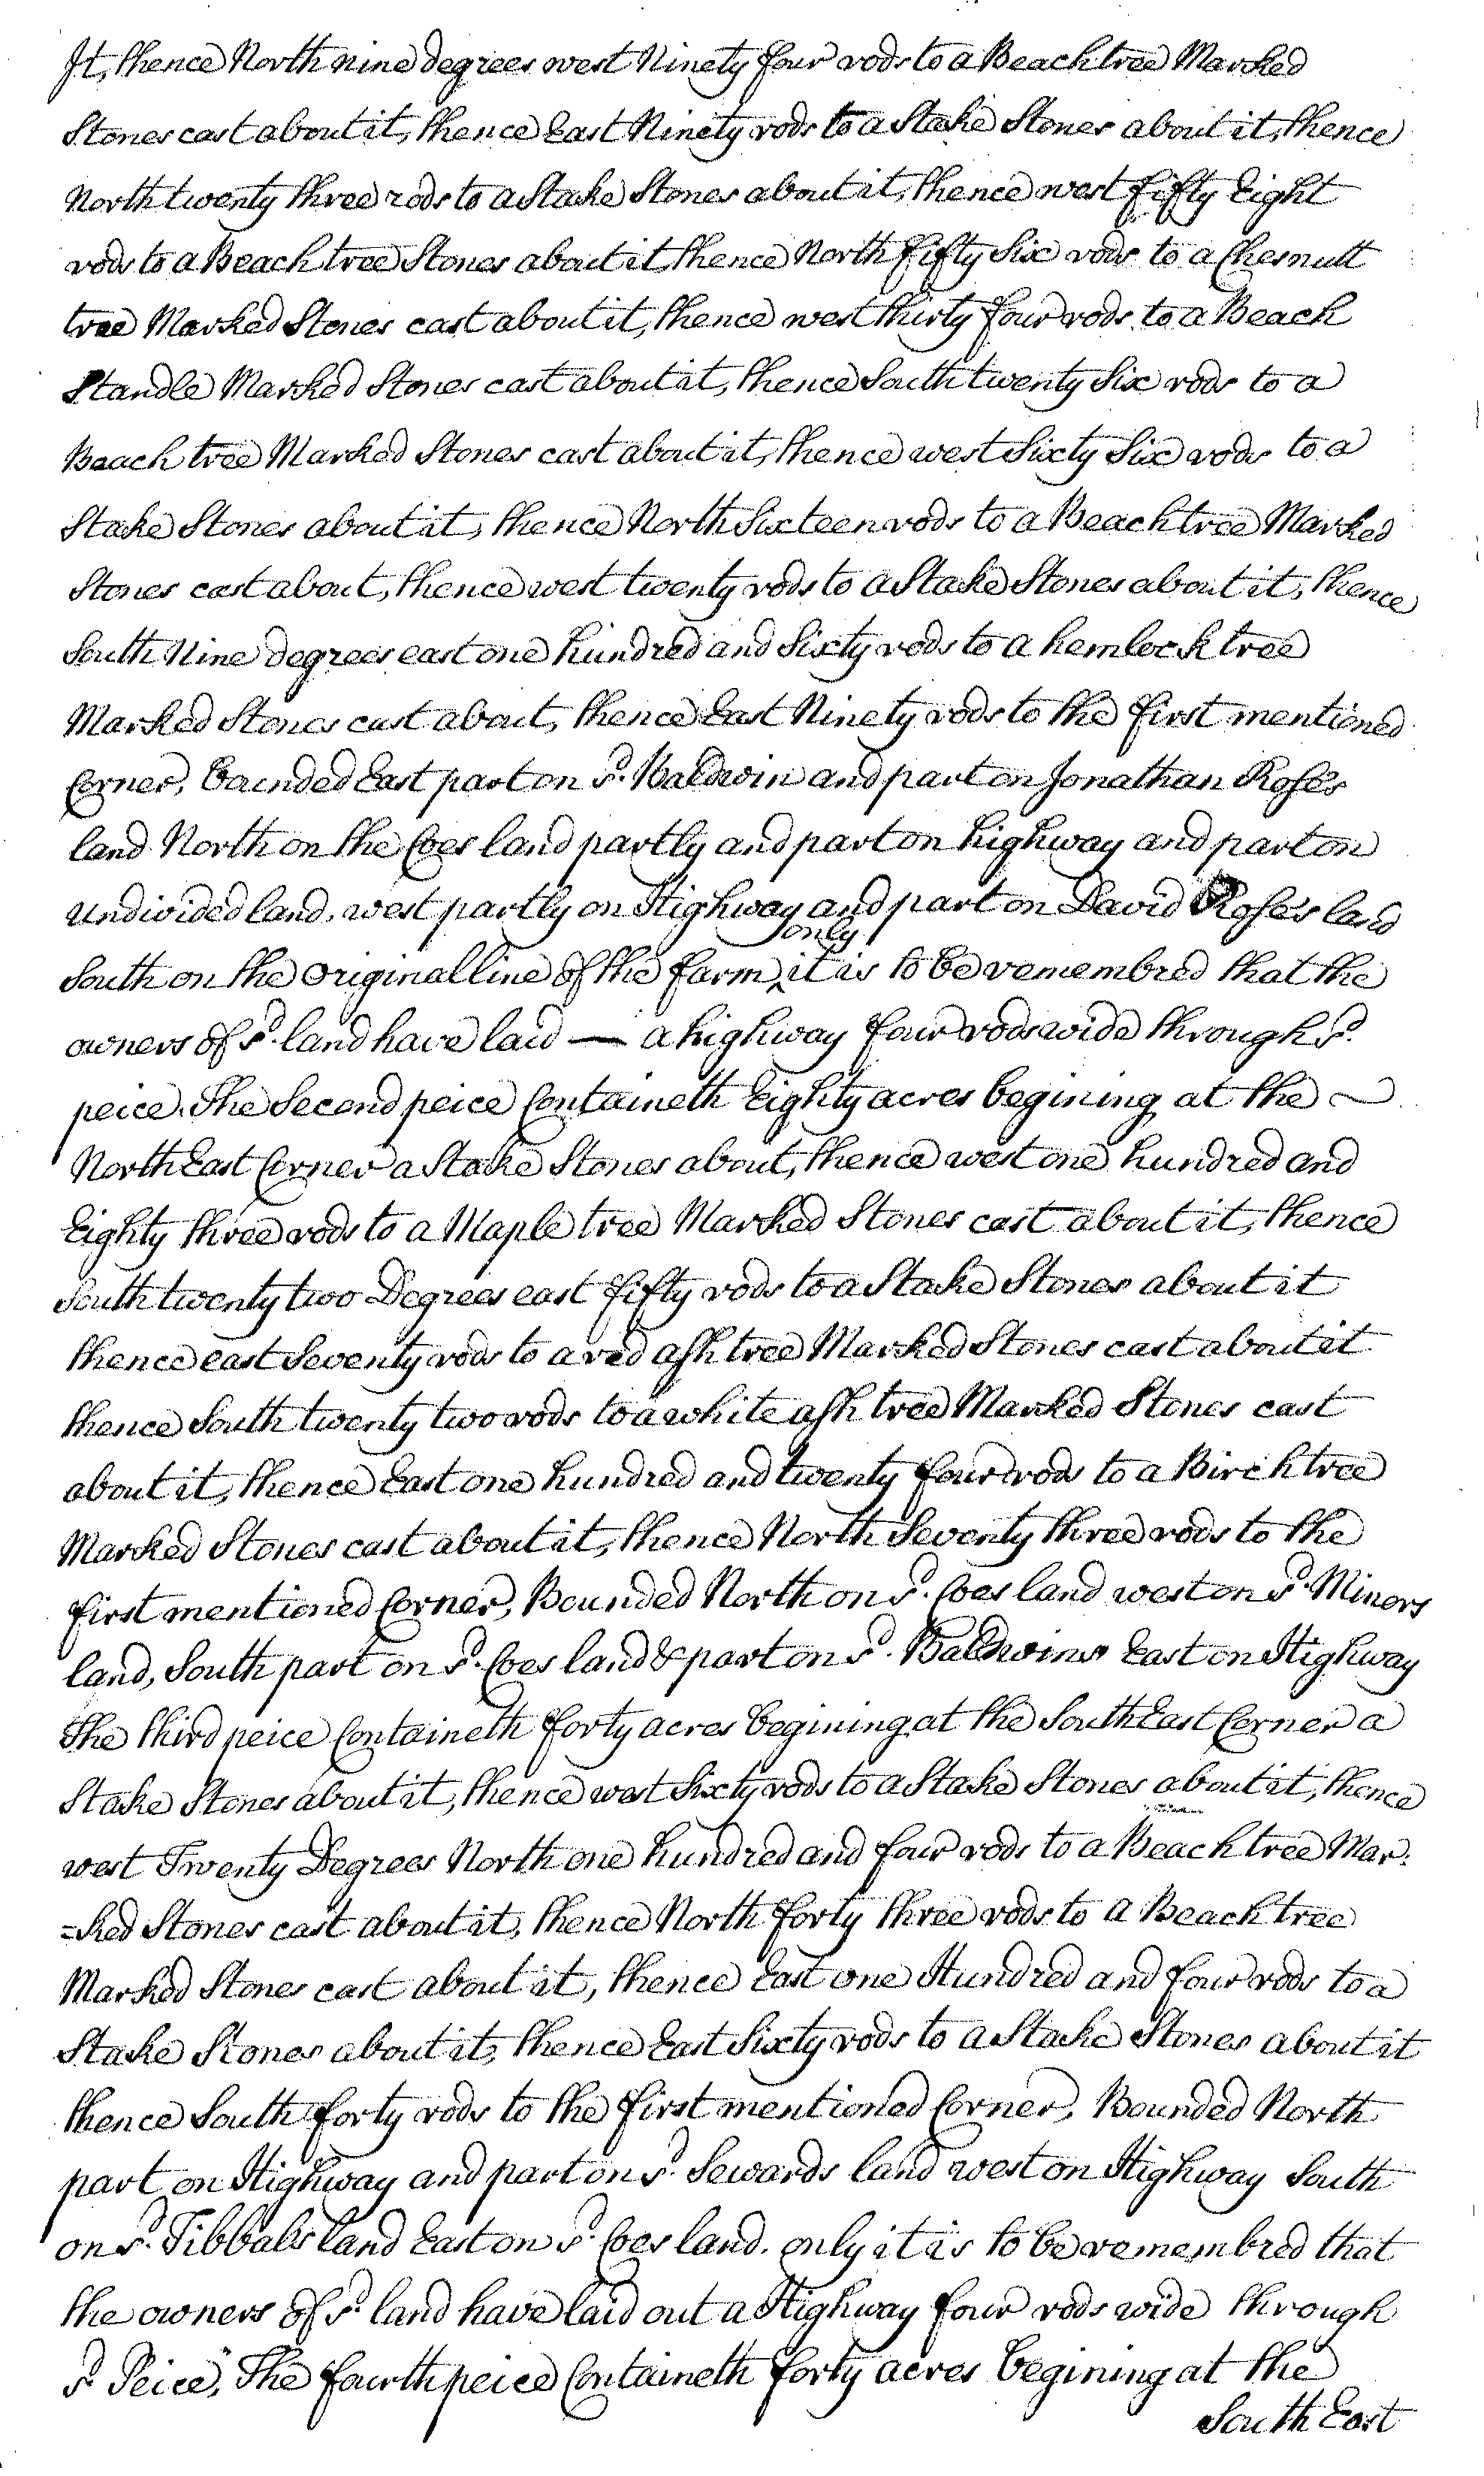 It, thence North nine degrees west Ninety four rods to a Beach tree Marked
Stones cast about it, thence East Ninety rods to a Stake Stones about it, thence
North twenty three rods to a Stake Stones about it, thence west fifty Eight
rods to a Beach tree Stones about it thence North fifty Six rods to a Chesnutt
tree Marked Stones cast about it, thence west thirty four rods to a Beach
Standle Marked Stones cast about it, thence South twenty Six rods to a
Beach tree Marked Stones cast about it, thence west Sixty Six rods to a
Stake Stones about it, thence North Sixteen rods to a Beach tree Marked
Stones cast about, thence west twenty rods to a Stake Stones about it, thence
South Nine degrees east one hundred and Sixty rods to a hemlock tree
Marked Stones cast about, thence East Ninety rods to the first mentioned
Corner, bounded East part on sd. Baldwin and part on Jonathan Roses
land North on the Coes land partly and part on highway and part on
undivided land, west partly on Highway and part on David Roses land
South on the original line of the farm, only it is to be remembred that the
owners of sd. land have laid — a highway four rods wide through sd.
peice. The Second peice Containeth Eighty acres begining at the
North East Corner a Stake Stones about, thence west one hundred and
Eighty three rods to a Maple tree Marked Stones cast about it, thence
South twenty two Degrees east fifty rods to a Stake Stones about it
thence east Seventy rods to a red ash tree Marked Stones cast about it
thence South twenty two rods to a white ash tree Marked Stones cast
about it, thence East one hundred and twenty four rods to a Birch tree
Marked Stones cast about it, thence North Seventy three rods to the
first mentioned Corner, Bounded North on sd. Coes land west on sd. Miners
land, South part on sd. Coes land & part on sd. Baldwins East on Highway
The third peice Containeth forty acres begining at the South East Corner a
Stake Stones about it, thence west Sixty rods to a Stake Stones about it, thence
west Twenty Degrees North one hundred and four rods to a Beach tree Mar:
=ked Stones cast about it, thence North forty three rods to a Beach tree
Marked Stones cast about it, thence East one Hundred and four rods to a
Stake Stones about it, thence East Sixty rods to a Stake Stones about it
thence South forty rods to the first mentioned Corner, Bounded North
part on Highway and part on sd. Sewards land west on Highway South
on sd. Tibbals land East on sd. Coes land. only it is to be remembred that
the owners of sd. land have laid out a Highway four rods wide through
sd. Peice, The fourth peice Containeth forty acres begining at the
South East